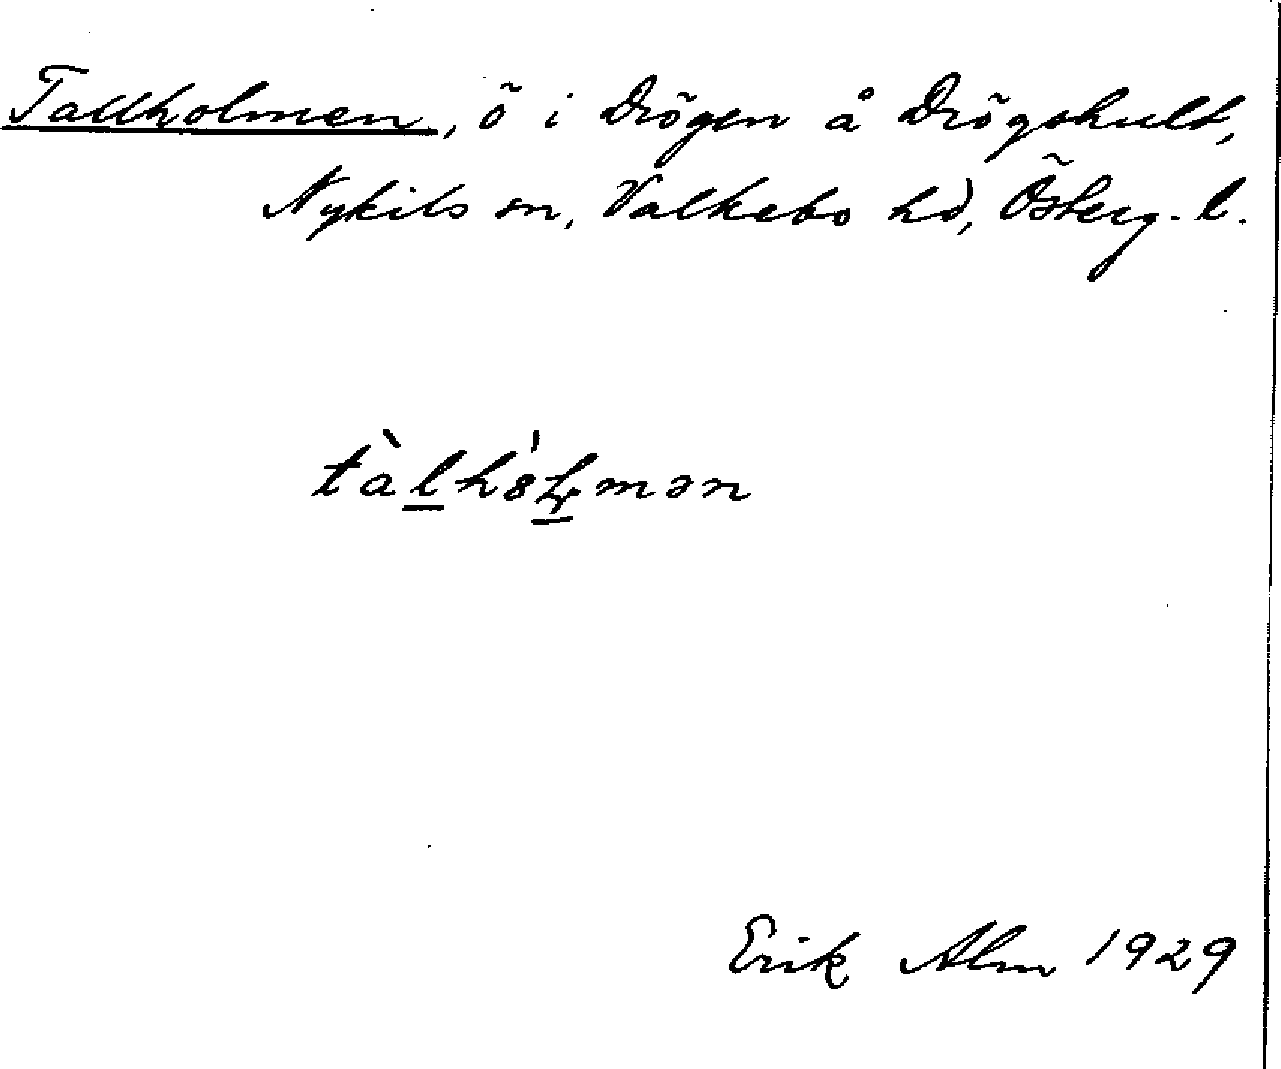 Tallholmen, ö i Drögen å Drögshult,
Nykils sn, Valkebo hd, Österg. l.
tàl̲hò̩l̲mən
Erik Alm 1929